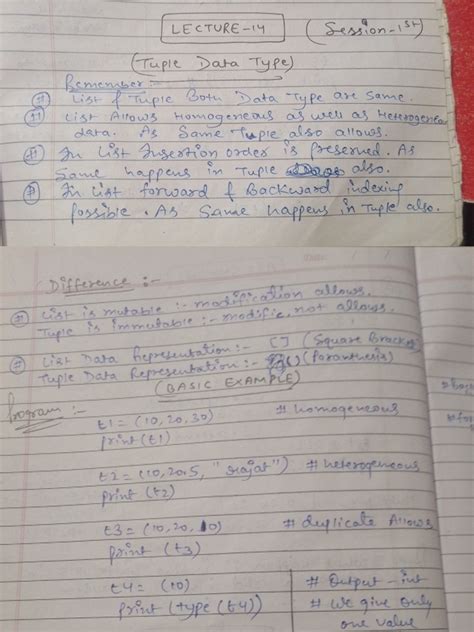 LECTURE-14 (Session-1st)
(Tuple Data Type)
Remember:-
# List & Tuple Both Data Type are Same.
# List Allows Homogeneous as well as Heterogeneous
data. As Same Tuple also allows.
# In List Insertion order is preserved. As
Same happens in Tuple also.
# In List forward & Backward indexing
possible. As Same happens in Tuple also.
Difference :-
# List is mutable :- modification allows.
Tuple is immutable :- modific, not allows.
# List Data Representation:- [] (Square Bracket)
Tuple Data Representation:- () (Paranthesis)
(BASIC EXAMPLE)
Program :-
t1 = (10,20,30) # homogeneous
print(t1)
t2 = (10,20.5, "rajat") # heterogeneous
print (t2)
t3 = (10,20,10) # duplicate Allows
print (t3)
t4 = (10) # Output - int
print (type (t4)) # We give only
one value